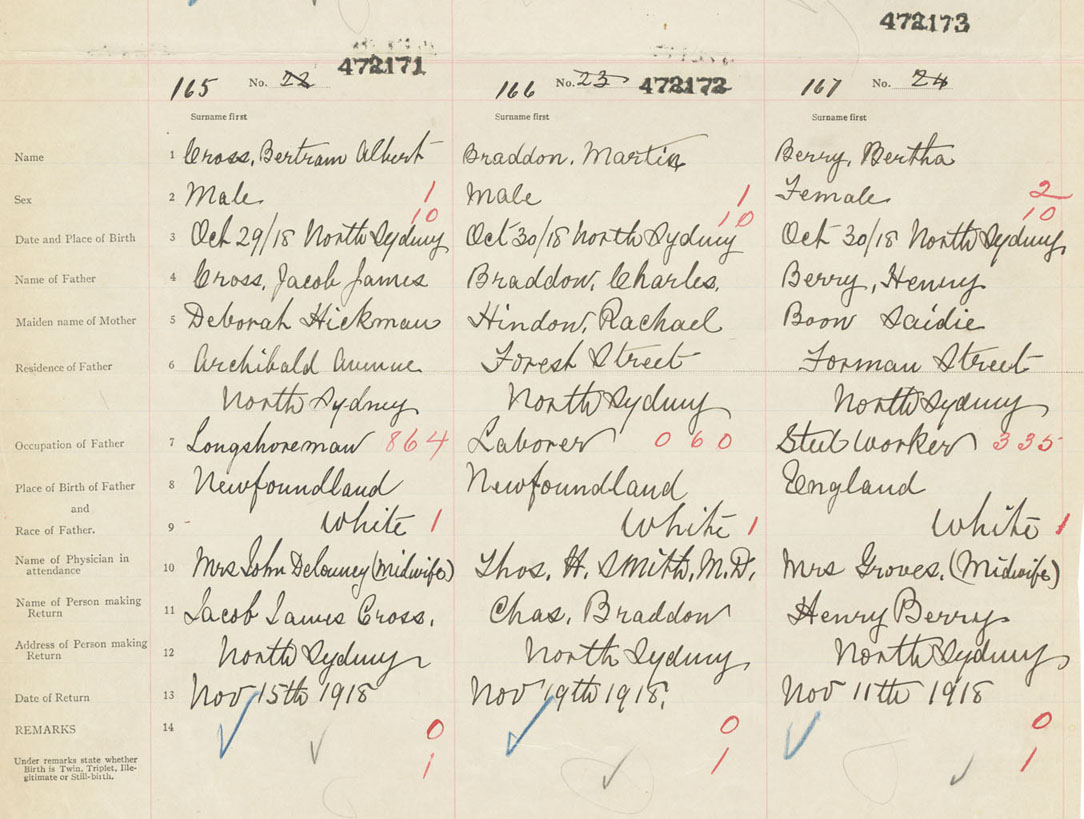 472173
472171
165 No. 22
166 No. 23 472172
167 No. 24
Surname first Surname first Surname first
Name 1 Cross, Bertram Albert Braddon, Martin Berry, Bertha
Sex 2 Male 1 Male 1 Female 2
10 10 10
Date and Place of Birth 3 Oct 29/18 North Sydney Oct 30/18 North Sydney Oct 30/18 North Sydney
Name of Father 4 Cross, Jacob James Braddon, Charles. Berry, Henry
Maiden name of Mother 5 Deborah Hickman Hindon, Rachael Boon Saidie
Residence of Father 6 Archibald Avenue Forest Street Forman Street
North Sydney North Sydney North Sydney
Occupation of Father 7 Longshoreman 864 Laborer 060 Steel worker 335
Place of Birth of Father 8 Newfoundland Newfoundland England
and
Race of Father. 9 White 1 White 1 White 1
Name of Physician in
attendance 10 Mrs John Delouney (Midwife) Thos. H. Smith, M.D. Mrs Groves. (Midwife)
Name of Person making
Return 11 Jacob James Cross. Chas. Braddon Henry Berry
Address of Person making
Return 12 North Sydney North Sydney North Sydney
Date of Return 13 Nov 15th 1918 Nov 19th 1918. Nov 11th 1918
REMARKS 14 0 0 0
Under remarks state whether
Birth is Twin, Triplet, Ille-
gitimate or Still-birth. 1 1 1